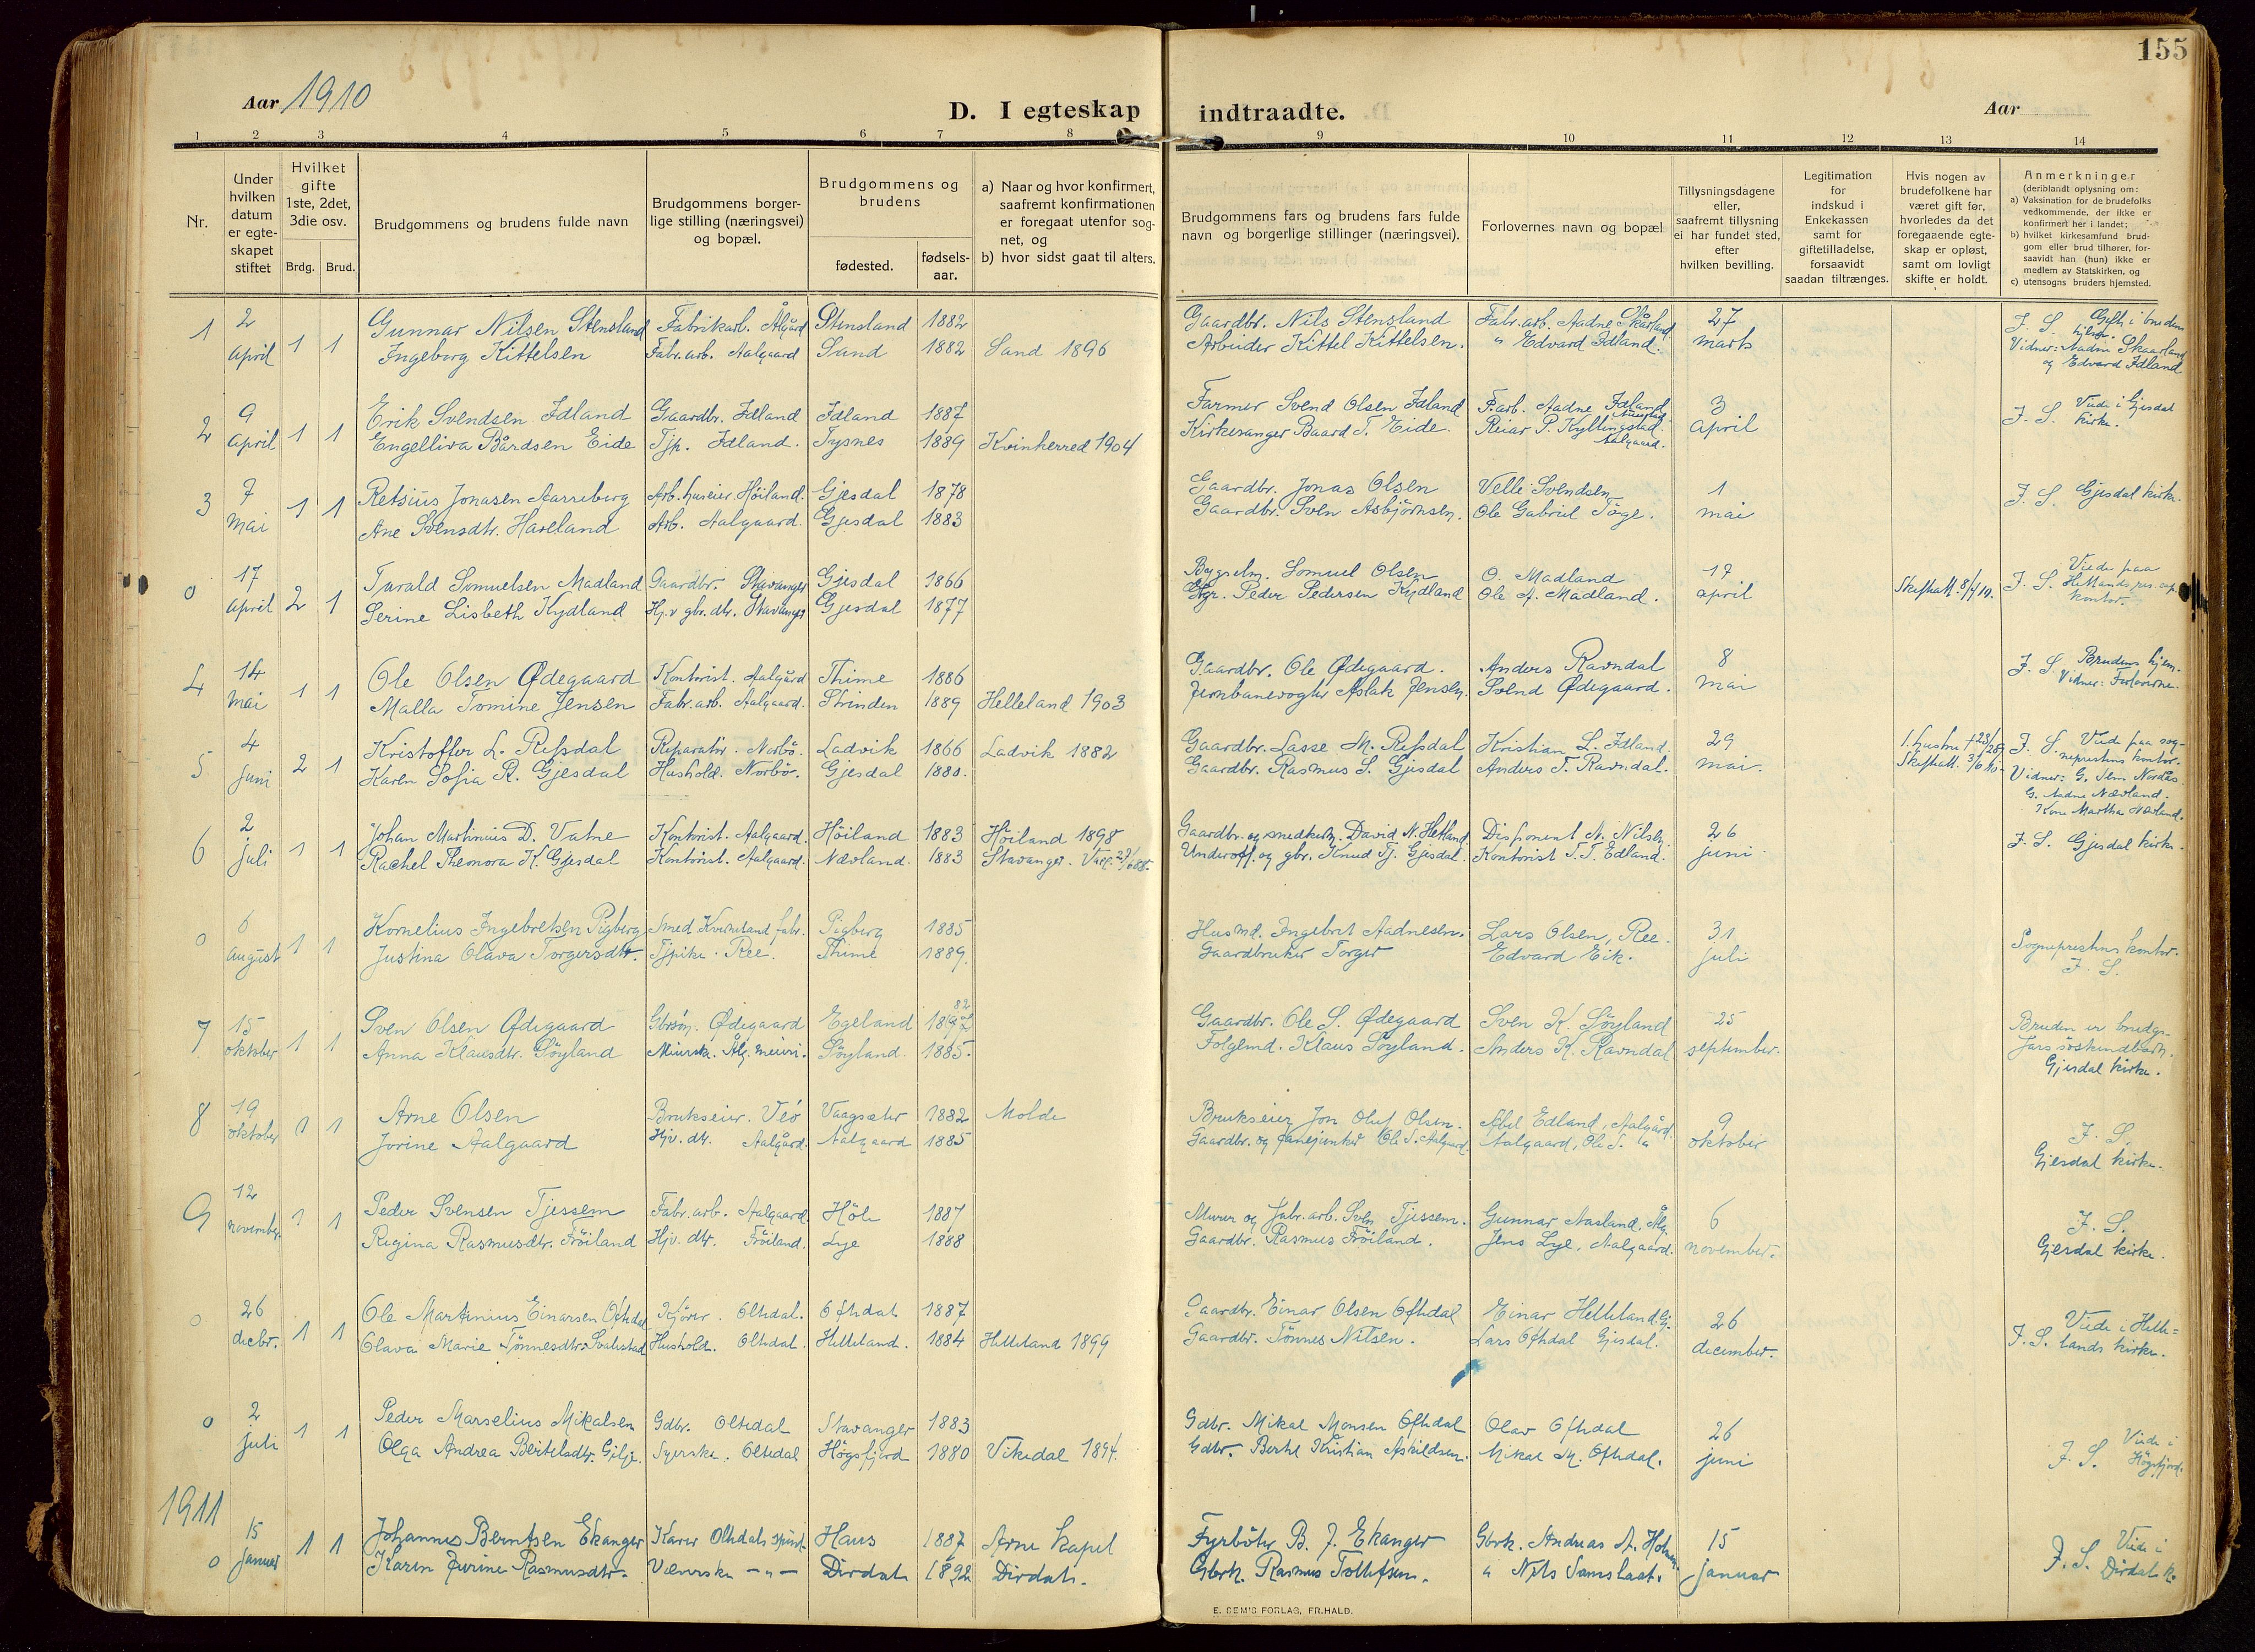 155
Aar 1910
D. I egteskap indtraadte.
Aar
1 2 3 4 5 6 7 8 9 10 11 12 13 14
Nr.
Under
hvilken
datum
er egte-
skapet
stiftet
Hvilket
gifte
1ste, 2det,
3die osv.
Brdg. Brud.
Brudgommens og brudens fulde navn
Brudgommens borger-
lige stilling (næringsvei)
og bopæl.
Brudgommens og
brudens
fødested.
fødsels-
aar.
a) Naar og hvor konfirmert,
saafremt konfirmationen
er foregaat utenfor sog-
net, og
b) hvor sidst gaat til alters.
Brudgommens fars og brudens fars fulde
navn og borgerlige stillinger (næringsvei).
Forlovernes navn og bopæl
Tillysningsdagene
eller,
saafremt tillysning
ei har fundet sted,
efter
hvilken bevilling.
Legitimation
for
indskud i
Enkekassen
samt for
giftetilladelse,
forsaavidt
saadan tiltrænges.
Hvis nogen av
brudefolkene har
været gift før,
hvorledes da det
foregaaende egte-
skap er opløst,
samt om lovligt
skifte er holdt.
Anmerkninger
(deriblandt oplysning om:
a) Vaksination for de brudefolks
vedkommende, der ikke er
konfirmert her i landet;
b) hvilket kirkesamfund brud-
gom eller brud tilhører, for-
saavidt han (hun) ikke er
medlem av Statskirken, og
c) utensogns bruders hjemsted.
1 2 april 1 1 Gunnar Nilsen Stensland Fabrikarb. Ålgård Stensland 1882 Gaardbr. Nils Stensland Fabr. arb. Aadne Skårland 27 marts J. S. Gift i brudens hjem.
Ingeborg Kittelsen Fabr. arb. Aalgaard Sand 1882 Sand 1896 Arbeider Kittel Kittelsen. " Edvard Idland. Vidner: Aadne Skaarland
og Edvard Idland
2 9 april 1 1 Erik Svendsen Idland Gaardbr. Idland Idland 1887 Farmer Svend Olsen Idland F.arb. Aadne Idland 3 april J. S. Viede i Gjesdal kirke.
Engelliva Bårdsen Eide Tjp. Idland. Tysnes 1889 Kvinherred 1904 Kirkesanger Baard T. Eide. Reiar P. Kyllingstad. Aalgaard.
3 7 mai 1 1 Retsius Jonasen Aarreberg Arb. huseier. Høiland. Gjesdal 1878 Gaardbr. Jonas Olsen Velle Svendsen 1 mai J. S. Gjesdal kirke.
Ane Svensdtr. Haveland Arb. Aalgaard. Gjesdal 1883 Gaardbr. Sven Asbjørnsen. Ole Gabriel Tøge.
0 17 april 2 1 Tarald Somuelsen Madland Gaardbr. Stavanger Gjesdal 1866 Bygselm. Somuel Olsen O. Madland 17 april Skifteatt. 8/4 10. J. S. Viede paa Hetlands res. cap. kontor.
Serine Lisbeth Kydland Hj.v gbr. dtr. Stavanger Gjesdal 1877 Gbr. Peder Pedersen Kydland Ole A. Madland.
4 14 mai 1 1 Ole Olsen Ødegaard Kontorist. Aalgård Thime 1886 Gaardbr. Ole Ødegaard. Anders Ravndal 8 mai J. S. Brudens hjem.
Malla Tomine Jensen Fabr. arb. Aalgaard. Strinden 1889 Helleland 1903 Jernbanevogter Aslak Jensen. Svend Ødegaard. Vidner: Forloverne.
5 4 juni 2 1 Kristoffer L. Refsdal Reparatør. Norbø. Ladvik 1866 Ladvik 1882 Gaardbr. Lasse M. Refsdal Kristian L. Idland. 29 mai. 1. hustru † Skifteatt. 3/6 10. J. S. Viede paa sog-
neprestens kontor.
Karen Sofia R. Gjesdal Hushold. Norbø. Gjesdal 1880. Gaardbr. Rasmus S. Gjesdal Anders T. Ravndal. Vidner: G. Nordås
G. Aadne Nævland.
Kone Martha Nævland.
6 2 juli 1 1 Johan Martinius D. Vatne Kontorist. Aalgaard. Høiland 1883 Høiland 1898 Gaardbr. og snedkerm. David N. Hetland. Disponent N. Nilsen. 26 juni J. S. Gjesdal kirke.
Rachel Theonora K. Gjesdal Kontorist. Aalgaard. Nævland. 1883 Stavanger. Underoff. og gbr. Knud Tj. Gjesdal. Kontorist T. T. Edland.
0 6 august 1 1 Kornelius Ingebretsen Pigberg Smed Kverneland fabr. Pigberg 1885 Husmd. Ingebret Aadnesen. Lars Olsen, Ree. 31 juli Sogneprestens kontor.
J. S.
Justina Olava Torgersdtr. Tjpike. Ree. Thime 1889. Gaardbruker Torger Edvard Eik.
7 15 oktober 1 1 Sven Olsen Ødegaard Gbrsøn. Ødegaard Egeland 82 Gaardbr. Ole S. Ødegaard Sven K. Søyland 25 september. Bruden er brudg-
fars søskendbarn.
Gjesdal kirke.
Anna Klausdtr. Søyland Meierske. Ålg. meieri. Søyland. 1885. Folgemd. Klaus Søyland. Anders K. Ravndal
8 19 oktober 1 1 Arne Olsen Brukseier. Veø Vaagsæter 1882 Molde Brukseier Jon Oluf Olsen. Abel Edland, Aalgård. 9 oktober J. S.
Gjesdal kirke.
Jorine Aalgaard Hjv. dtr. Aalgård. Aalgaard 1885 Gaardbr. og fanejunker Ole S. Aalgaard. Aalgaard, Ole S. "
9 12 november. 1 1 Peder Svensen Tjessem Fabr. arb. Aalgaard. Høle 1887 Murer og fabr. arb. Sven Tjessem. Gunnar Aasland, Ålg. 6 november. J. S.
Gjesdal kirke.
Regina Rasmusdtr. Frøiland Hjv. dtr. Frøiland. Lye 1888 Gaardbr. Rasmus Frøiland. Jens Lye, Aalgaard.
0 26 decbr. 1 1 Ole Martinius Einarsen Oftedal Kjører. Oltedal. Oftedal 1887 Gaardbr. Einar Olsen Oftedal Einar Helleland Gj. 26 december. J. S. Viede i Helle-
lands kirke.
Olava Marie Tønnesdtr. Svalestad Hushold. Oltedal. Helleland. 1884 Helleland 1899 Gaardbr. Tønnes Nilsen. Lars Oftedal Gjesdal.
0 2 juli 1 1 Peder Marselius Mikalsen Gdbr. Oltedal Stavanger 1883 Gdbr. Mikal Monsen Oftedal Olav Oftedal 26 juni J. S. Viede i
Høgsfjord.
Olga Andrea Bertelsdtr. Gilje. Syerske. Oltedal Høgsfjord 1880 Vikedal 1894. Gdbr. Bertel Kristian Askildsen. Mikal M. Oftedal.
1911
0 15 januar 1 1 Johannes Berntsen Ekanger Karer Oltedals spind. Haus 1887 Arne kapel Fyrbøter B. J. Ekanger Gbrk. Andreas A. 15 januar J. S. Viede i
Dirdal k.
Karen Jurine Rasmusdtr. Væverske - " - Dirdal 1892 Dirdal. Gbrk. Rasmus Tollefsen. " Nils Samslaat.
E. SEM'S FORLAG, FR.HALD.